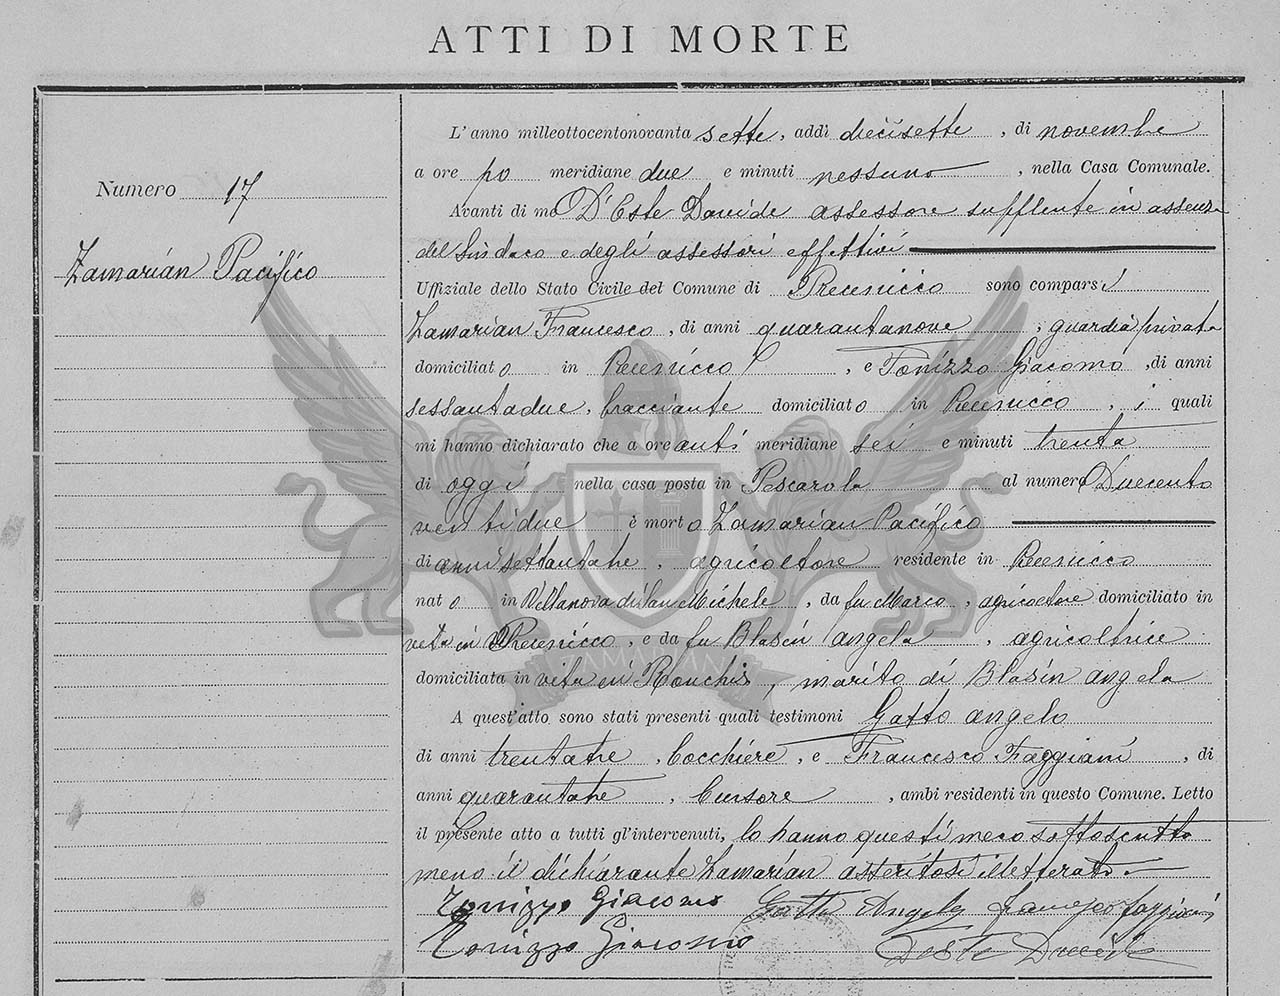 ATTI DI MORTE
Numero 17
Zamarian Pacifico
L'anno milleottocentonovanta sette, addì diecisette, di novembre
a ore po meridiane due e minuti nessuno, nella Casa Comunale.
Avanti di me D'Este Davide assessore supplente in assenza
del Sindaco e degli assessori effettivi
Uffiziale dello Stato Civile del Comune di Precenicco sono comparsi
Zamarian Francesco, di anni quarantanove, guardia privata
domiciliato in Precenicco, e Tonizzo Giacomo, di anni
sessantadue, bracciante domiciliato in Precenicco, i quali
mi hanno dichiarato che a ore anti meridiane sei e minuti trenta
di oggi nella casa posta in Pescarola al numero Duecento
ventidue è morto Zamarian Pacifico
di anni settantatre, agricoltore residente in Precenicco
nato in Villanova di San Michele, da fu Marco, agricoltore domiciliato in
vita in Precenicco, e da fu Blasin Angela, agricoltrice
domiciliata in vita in Ronchis, marito di Blasin Angela
A quest'atto sono stati presenti quali testimoni Gatto Angelo
di anni trentatre, Cocchiere, e Francesco Faggiani, di
anni quarantatre, Cursore, ambi residenti in questo Comune. Letto
il presente atto a tutti gl'intervenuti, lo hanno questi meco sottoscritto
meno il dichiarante Zamarian asseritosi illetterato.
Tonizzo Giacomo Gatto Angelo Francesco Faggiani
Tonizzo Giacomo D'Este Davide
ZAMARIAN